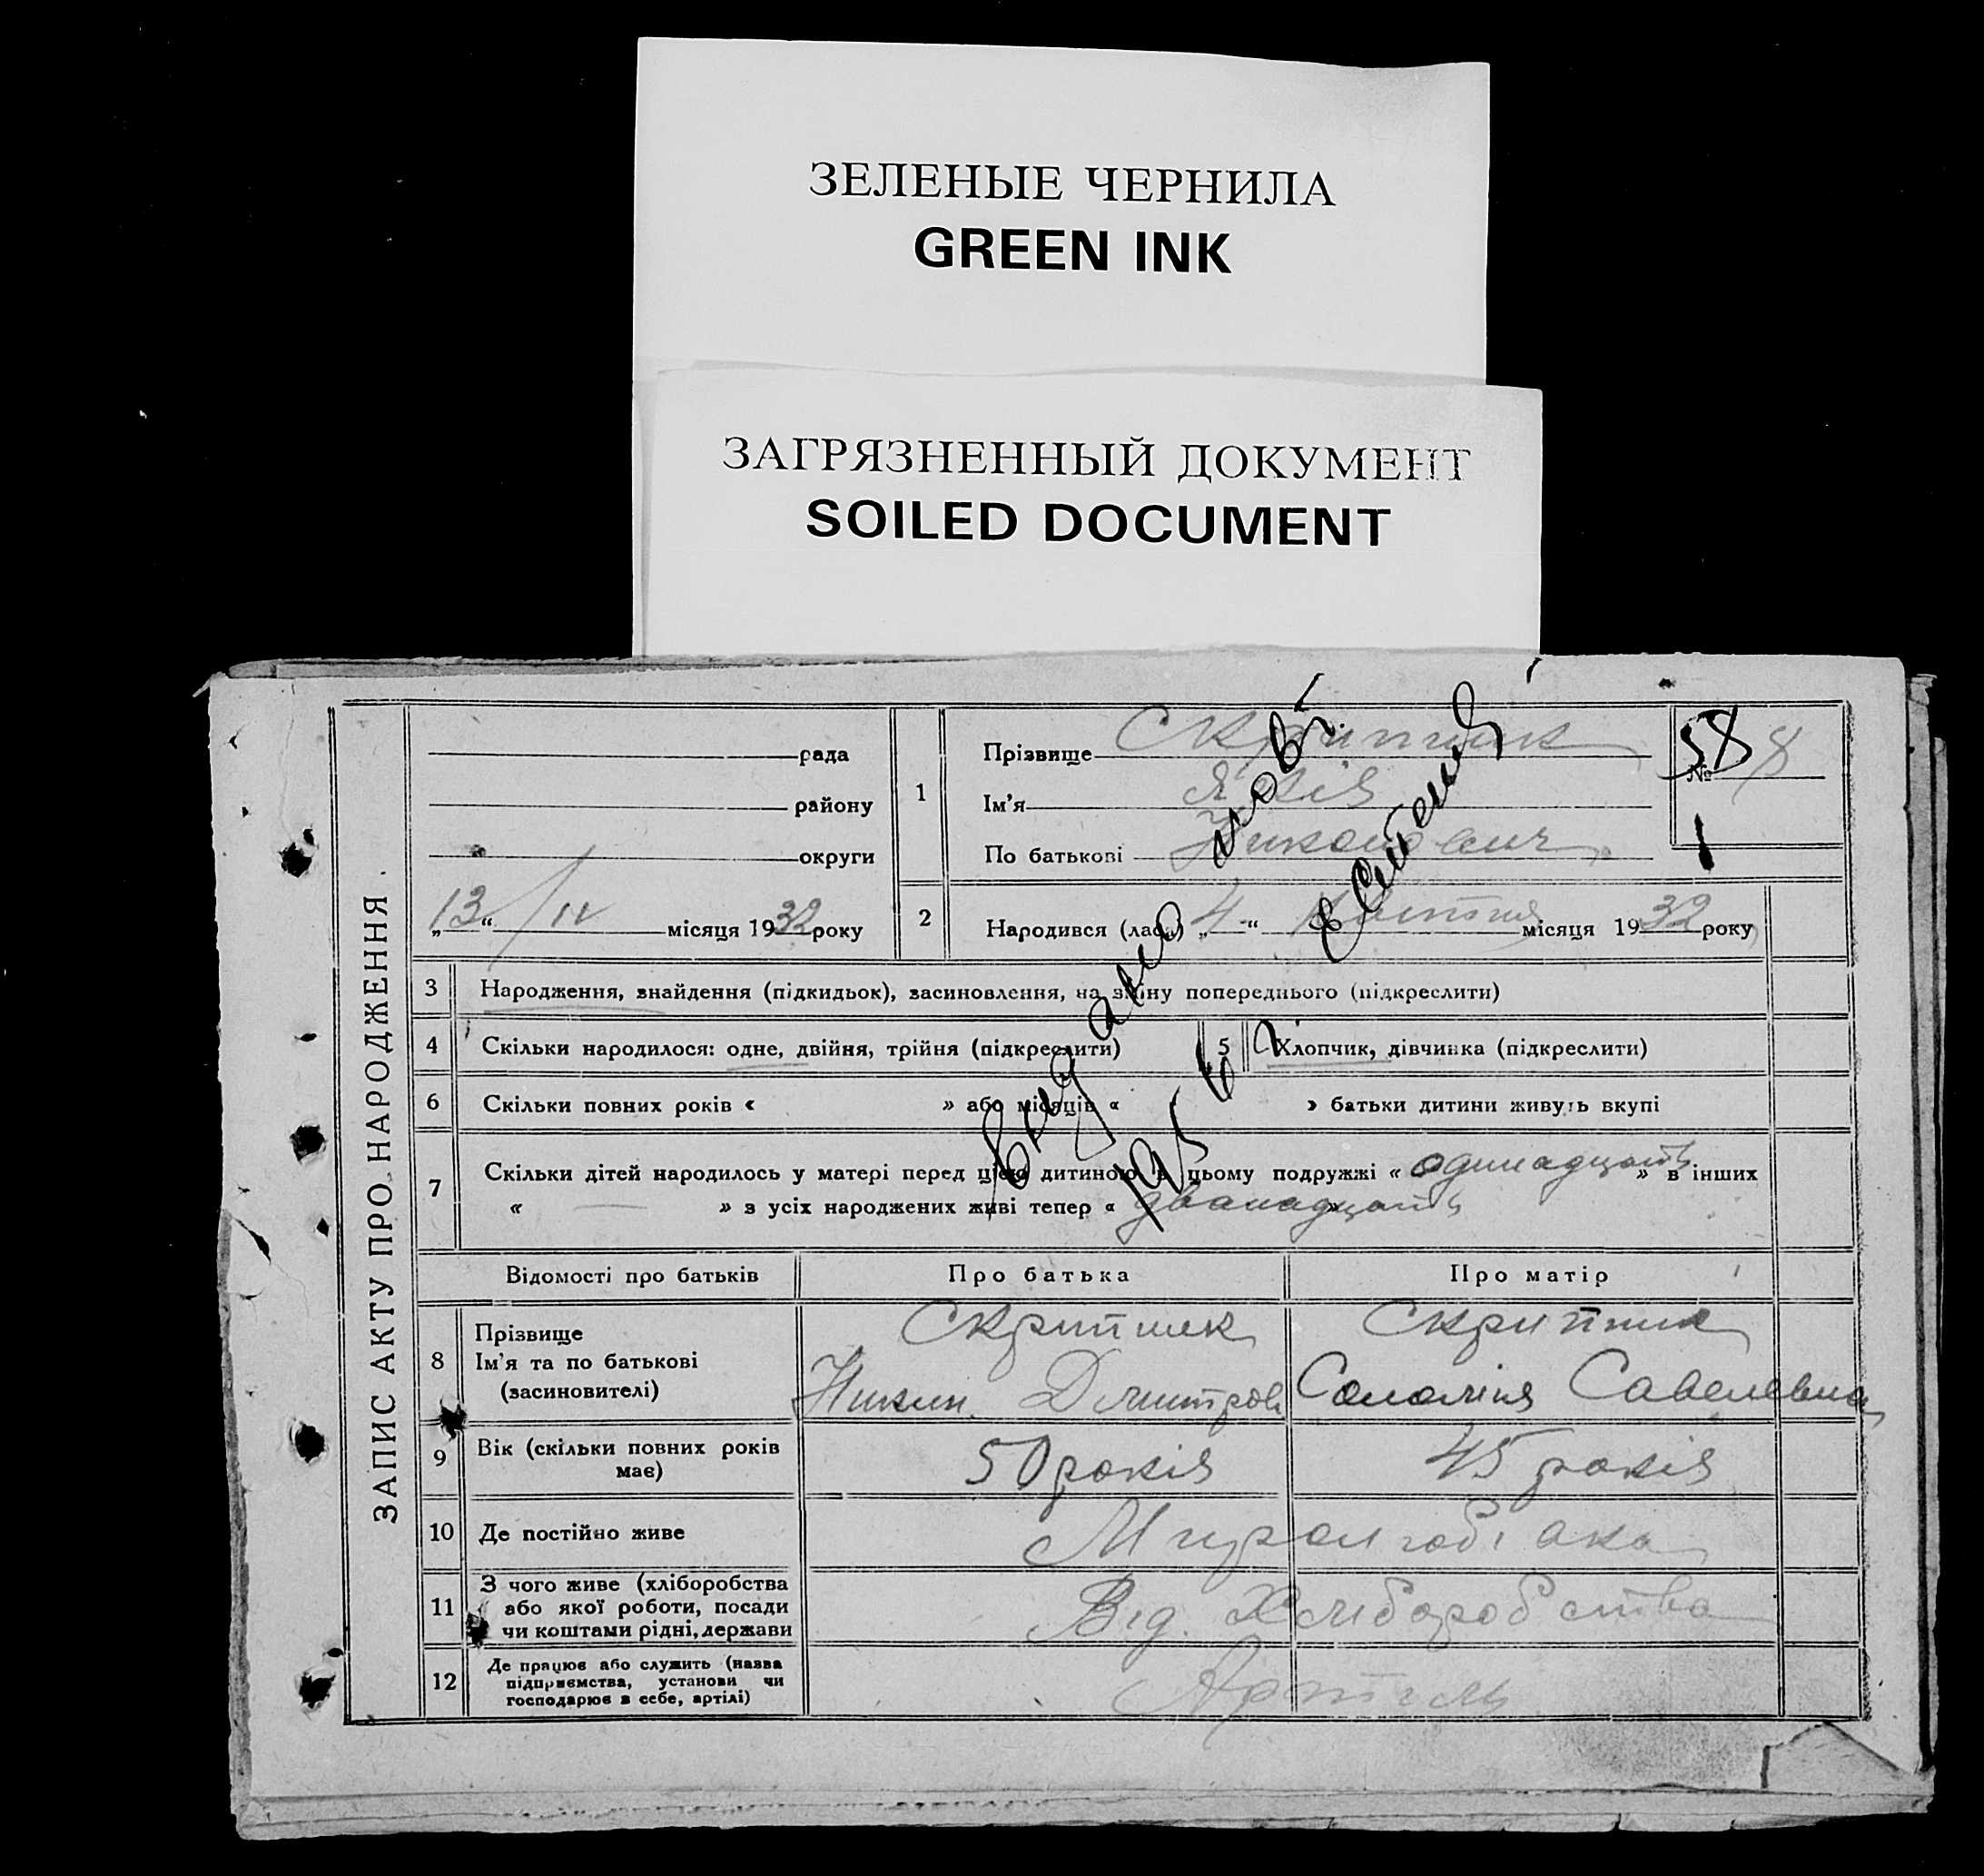 ЗЕЛЕНЫЕ ЧЕРНИЛА
GREEN INK
ЗАГРЯЗНЕННЫЙ ДОКУМЕНТ
SOILED DOCUMENT
ЗАПИС АКТУ ПРО НАРОДЖЕННЯ
рада
району
округи
„13“ /IV місяця 1932 року
1
Прізвище Скрипник
Ім'я
По батькові Никонович
58 №8
2 Народився (лась) „4“ Квітня місяця 1932 року
3 Народження, знайдення (підкидьок), засиновлення, на зміну попереднього (підкреслити)
4 Скільки народилося: одне, двійня, трійня (підкреслити)
5 Хлопчик, дівчинка (підкреслити)
6 Скільки повних років « » або місяців « » батьки дитини живуть вкупі
7 Скільки дітей народилось у матері перед цією дитиною в цьому подружжі « одинадцать » в інших
« — » з усіх народжених живі тепер « дванадцать
1956
Відомості про батьків Про батька Про матір
8 Прізвище
Ім'я та по батькові
(засиновителі)
Скрипник
Никон Дмитров
Скрипник
Соломія Савелевна
9 Вік (скільки повних років
має)
50 років 45 років
10 Де постійно живе
11 З чого живе (хліборобства
або якої роботи, посади
чи коштами рідні, держави
Від. Хліборобства
12 Де працює або служить (назва
підприємства, установи чи
господарює в себе, артілі)
Артіль